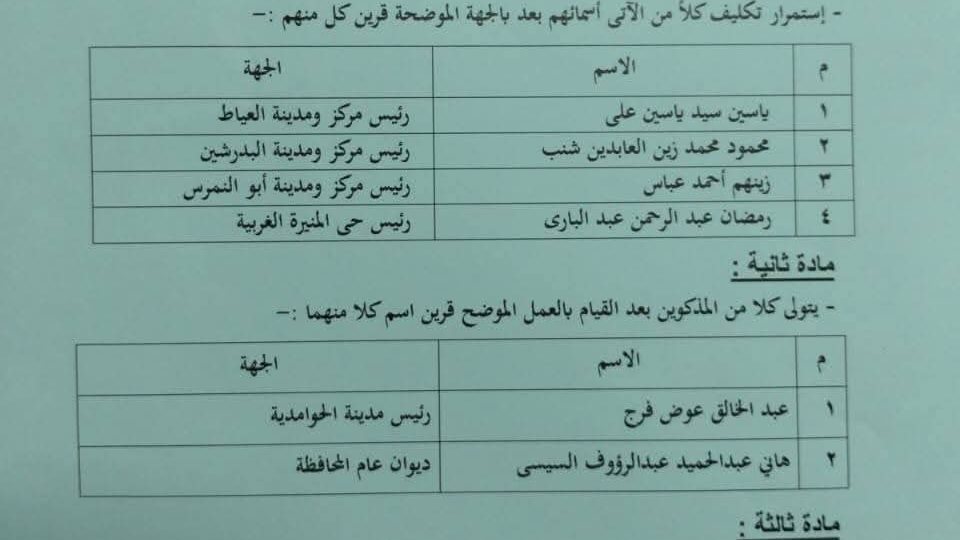 - إستمرار تكليف كلاً من الآتى أسمائهم بعد بالجهة الموضحة قرين كل منهم :-
م الاسم الجهة
١ ياسين سيد ياسين على رئيس مركز ومدينة العياط
٢ محمود محمد زين العابدين شنب رئيس مركز ومدينة البدرشين
٣ زينهم أحمد عباس رئيس مركز ومدينة أبو النمرس
٤ رمضان عبد الرحمن عبد البارى رئيس حى المنيرة الغربية
مادة ثانية :
- يتولى كلا من المذكوين بعد القيام بالعمل الموضح قرين اسم كلا منهما :-
م الاسم الجهة
١ عبد الخالق عوض فرج رئيس مدينة الحوامدية
٢ هاني عبدالحميد عبدالرؤوف السيسى ديوان عام المحافظة
مادة ثالثة :